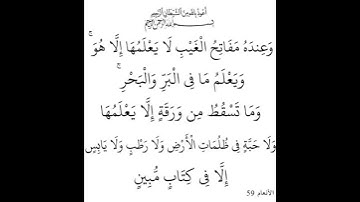 أعوذ بالله من الشيطان الرجيم
بسم الله الرحمن الرحيم
وَعِندَهُ مَفَاتِحُ الْغَيْبِ لَا يَعْلَمُهَا إِلَّا هُوَ ۚ
وَيَعْلَمُ مَا فِى الْبَرِّ وَالْبَحْرِ ۚ
وَمَا تَسْقُطُ مِن وَرَقَةٍ إِلَّا يَعْلَمُهَا
وَلَا حَبَّةٍ فِى ظُلُمَاتِ الْأَرْضِ وَلَا رَطْبٍ وَلَا يَابِسٍ
إِلَّا فِى كِتَابٍ مُّبِينٍ
الأنعام 59